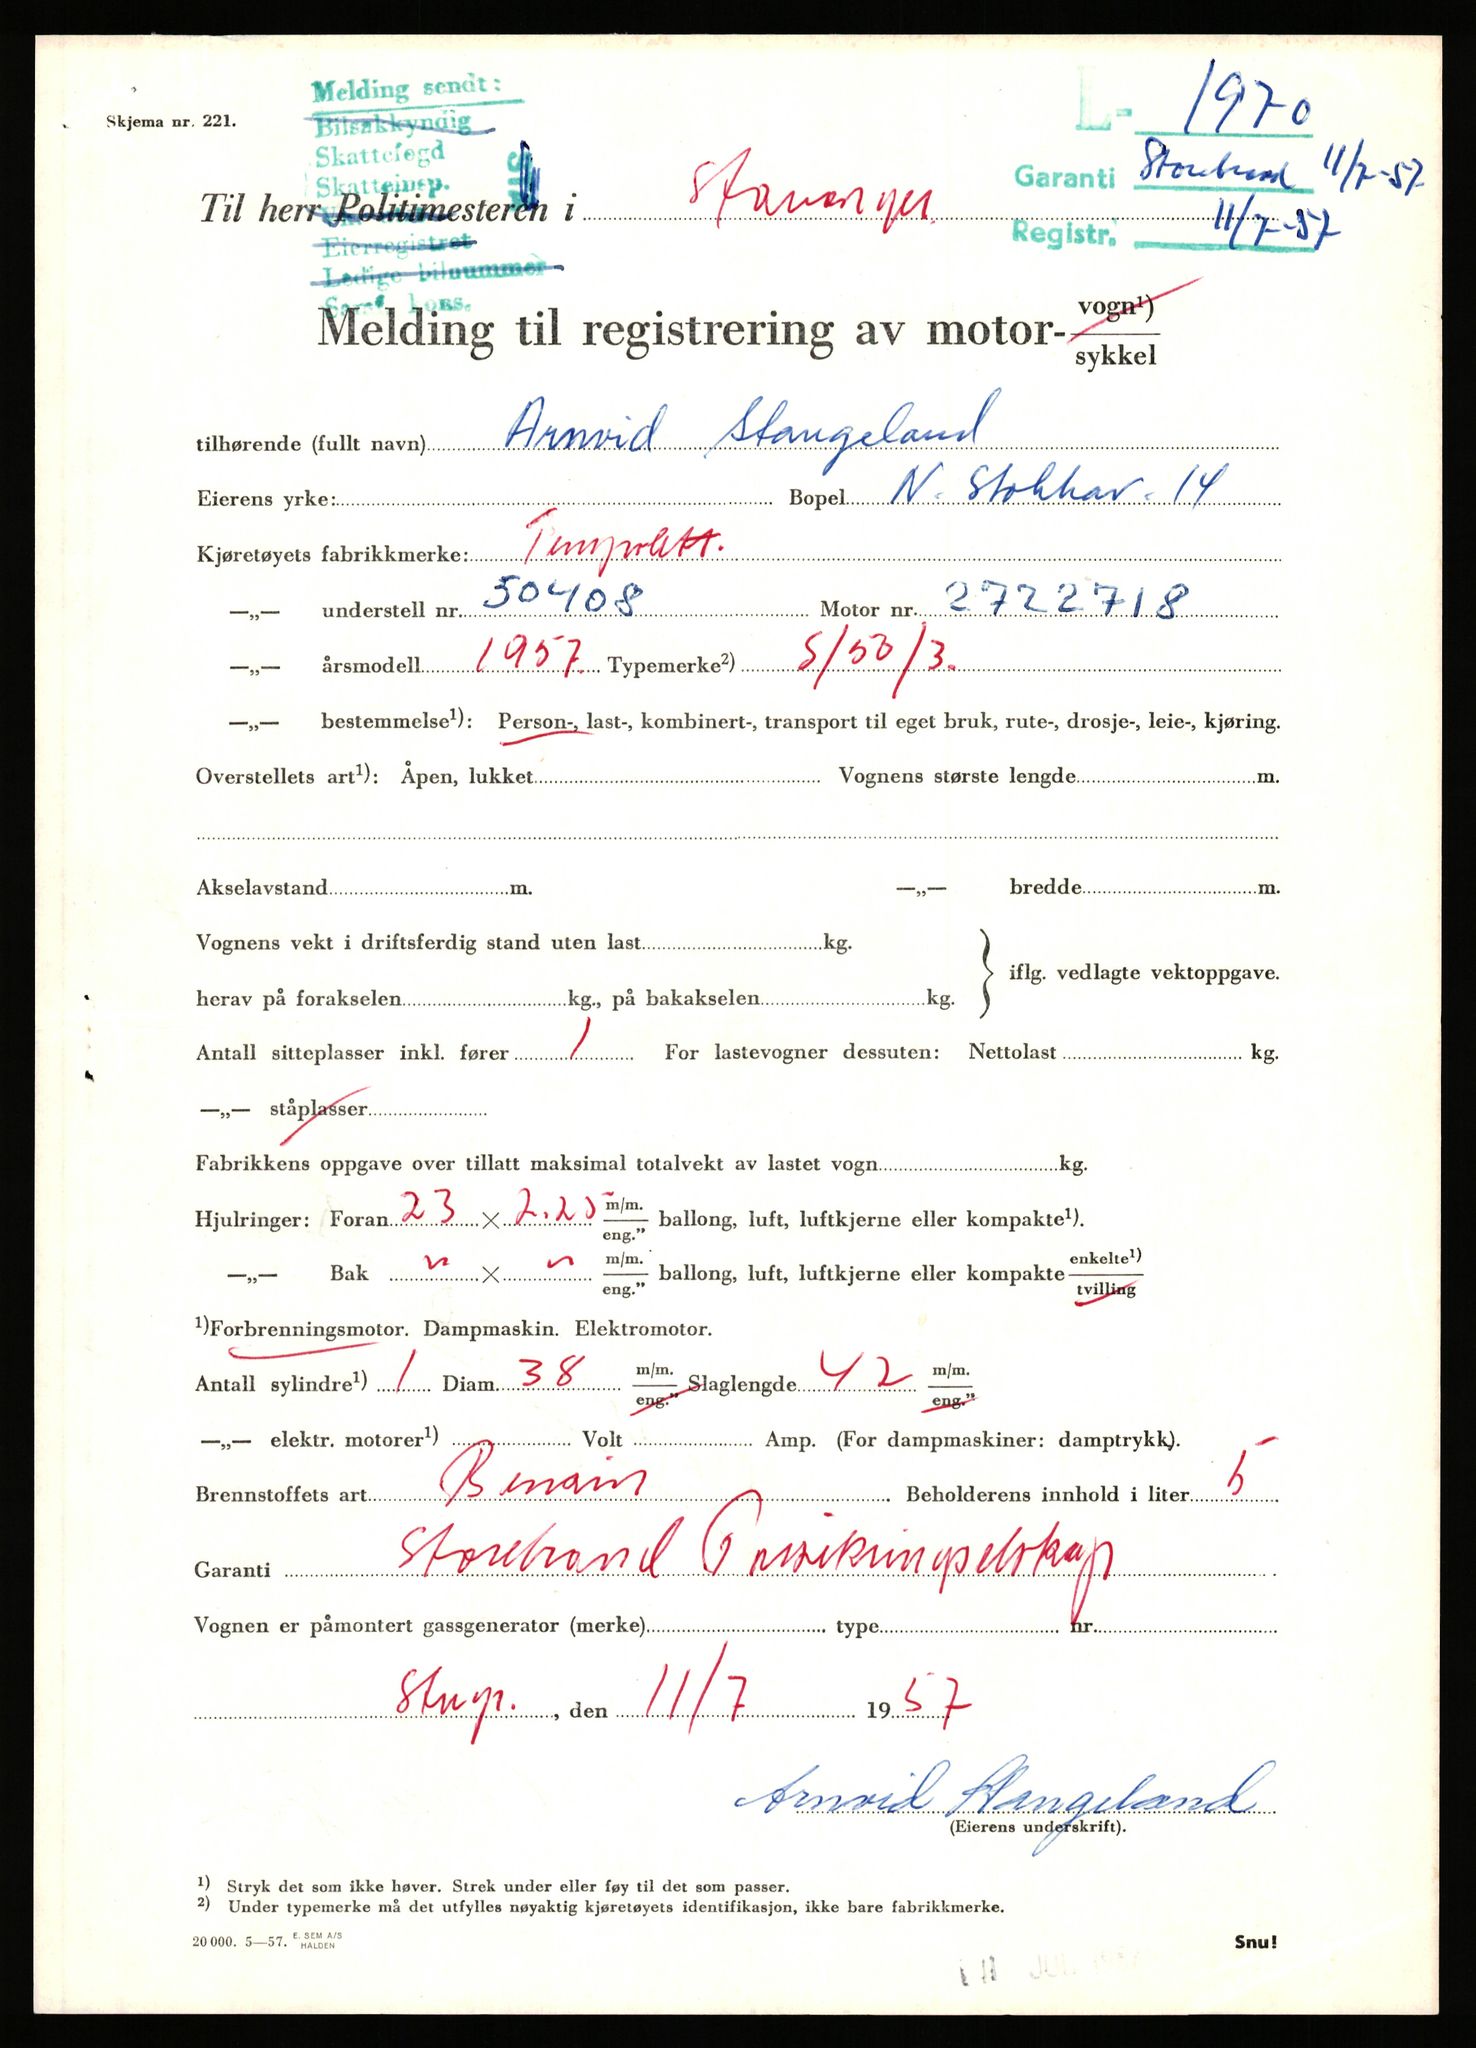 Skjema nr. 221.
Melding sendt:
Bilsakkyndig
Skattefogd
Skatteinsp.
Eierregistret
Ledige bilnummer
L- 1970
Garanti Storebrand 11/7-57
Registr. 11/7-57
Til herr Politimesteren i Stavanger
Melding til registrering av motor- vogn¹) sykkel
tilhørende (fullt navn) Arnvid Stangeland
Eierens yrke: Bopel N. Stokkav. 14
Kjøretøyets fabrikkmerke: Tempolett.
—„— understell nr. 50408 Motor nr. 2722718
—„— årsmodell 1957. Typemerke²) S/50/3.
—„— bestemmelse¹): Person-, last-, kombinert-, transport til eget bruk, rute-, drosje-, leie-, kjøring.
Overstellets art¹): Åpen, lukket Vognens største lengde m.
Akselavstand m. —„— bredde m.
Vognens vekt i driftsferdig stand uten last kg.
iflg. vedlagte vektoppgave.
herav på forakselen kg., på bakakselen kg.
Antall sitteplasser inkl. fører 1 For lastevogner dessuten: Nettolast kg.
—„— ståplasser
Fabrikkens oppgave over tillatt maksimal totalvekt av lastet vogn kg.
Hjulringer: Foran 23 × 2.25 m/m. eng.” ballong, luft, luftkjerne eller kompakte¹).
—„— Bak " × " m/m. eng.” ballong, luft, luftkjerne eller kompakte enkelte¹) tvilling
¹)Forbrenningsmotor. Dampmaskin. Elektromotor.
Antall sylindre¹) 1 Diam. 38 m/m. eng.” Slaglengde 42 m/m. eng.”
—„— elektr. motorer¹) Volt Amp. (For dampmaskiner: damptrykk).
Brennstoffets art Bensin Beholderens innhold i liter 5
Garanti Storebrand Forsikringselskap
Vognen er påmontert gassgenerator (merke) type nr.
Stvgr. , den 11/7 1957
Arnvid Stangeland
(Eierens underskrift).
¹) Stryk det som ikke høver. Strek under eller føy til det som passer.
²) Under typemerke må det utfylles nøyaktig kjøretøyets identifikasjon, ikke bare fabrikkmerke.
20 000. 5—57. E. SEM A/S HALDEN
Snu!